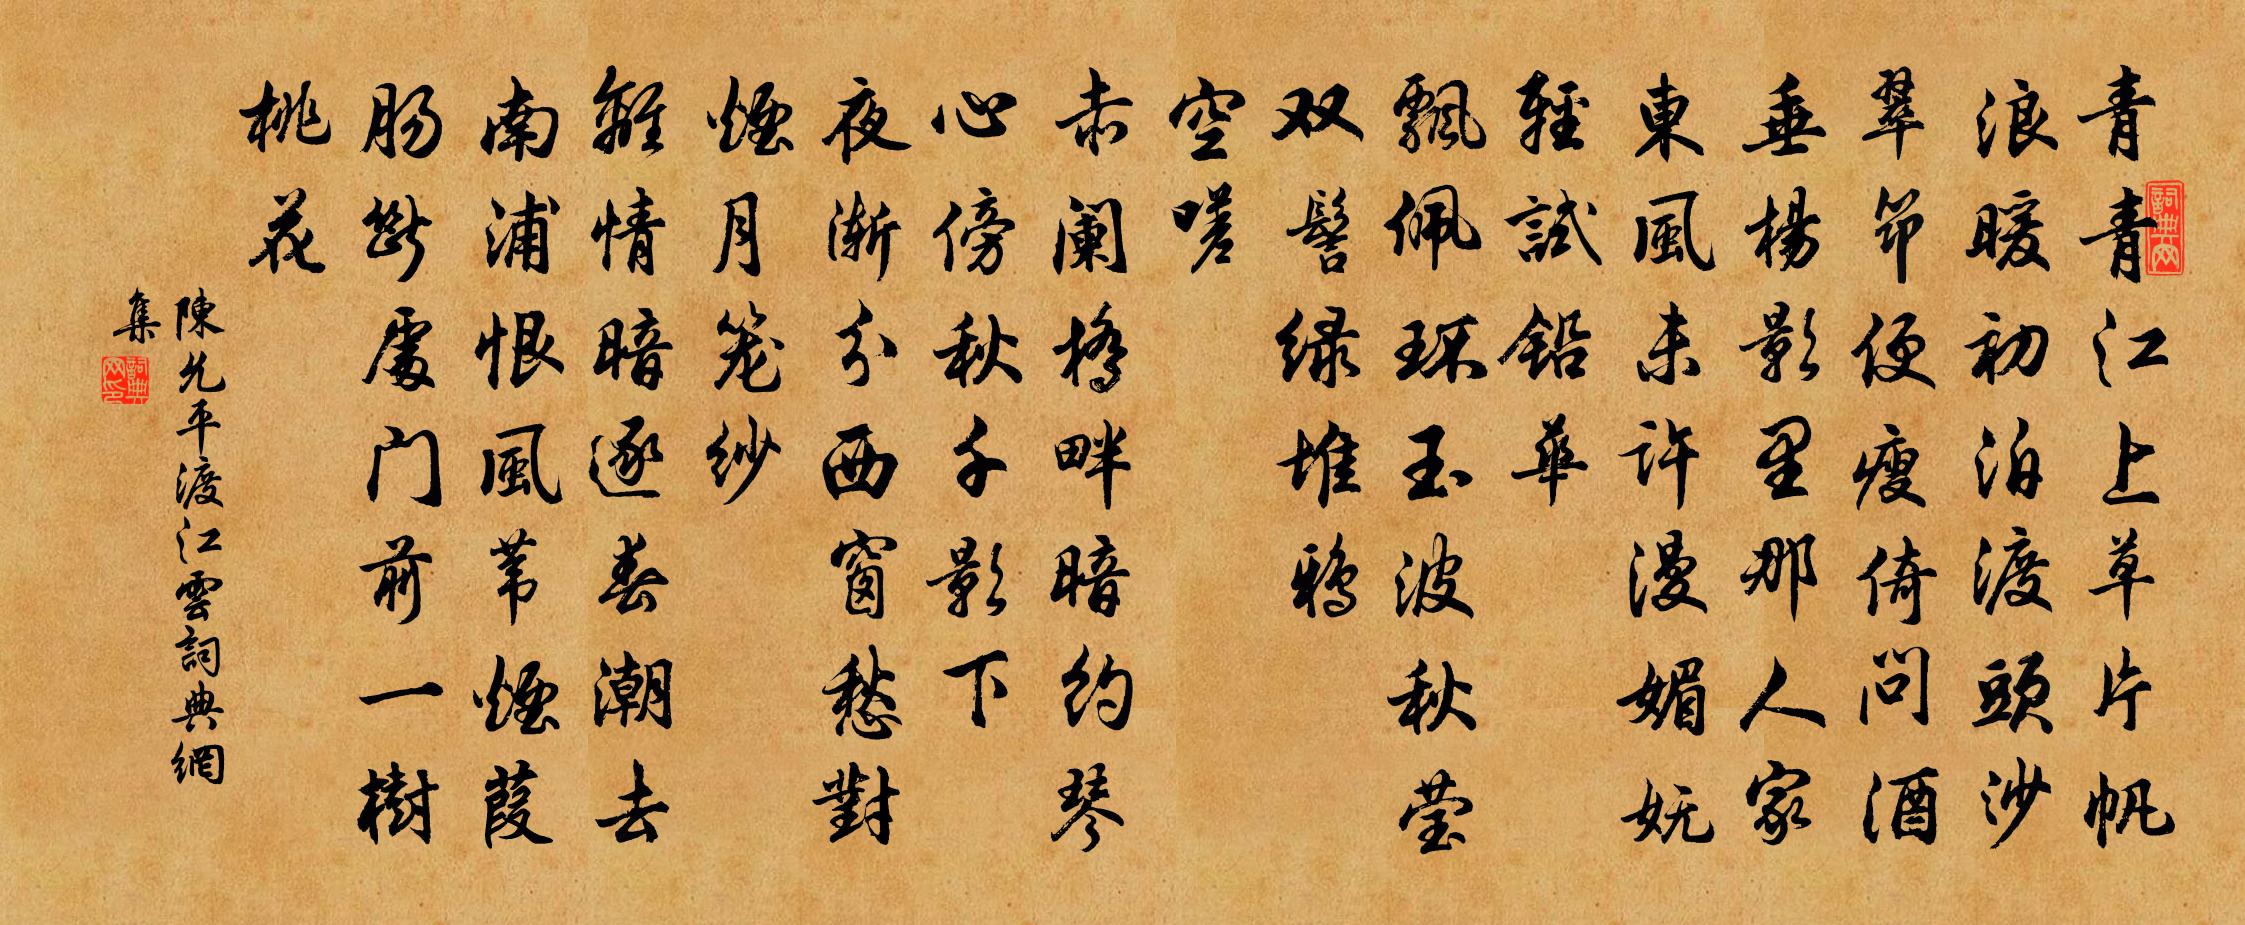 青青江上草片帆
浪暖初泊渡頭沙
翠筇便瘦倚問酒
垂楊影里那人家
東風未許漫媚妩
輕試鉛華
飄佩环玉波秋莹
双髻緑堆鴉
空嗟
赤阑橋畔暗約琴
心傍秋千影下
夜漸分西窗愁對
煙月笼紗
離情暗逐春潮去
南浦恨風苇煙葭
肠斷處门前一樹
桃花
陳允平渡江雲詞典網
集
詞典网
詞典网印